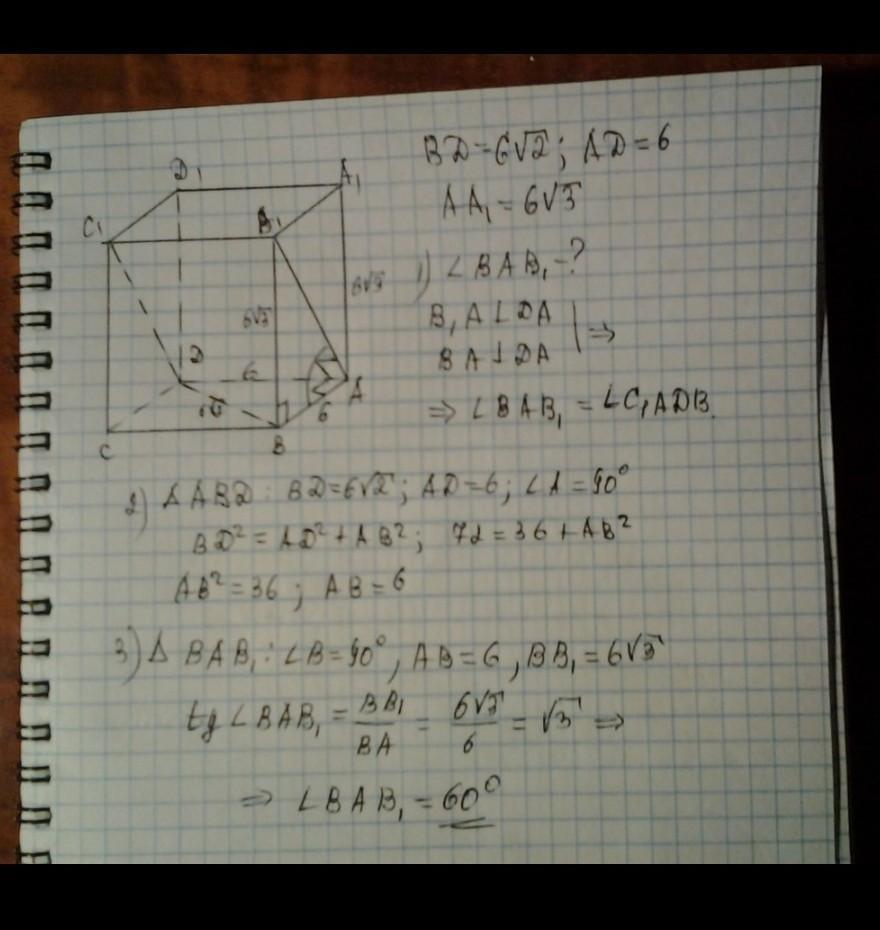 BD=6√2; AD=6
AA₁=6√3
D₁
A₁
C₁
B₁
6√3
6√3
D
6
A
6
C
B
1) ∠BAB₁-?
B₁A⊥DA
BA⊥DA | ⇒
⇒ ∠BAB₁ = ∠C₁ADB.
2) ΔABD: BD=6√2; AD=6; ∠A=90°
BD²=AD²+AB²; 72=36+AB²
AB²=36; AB=6
3) Δ BAB₁: ∠B=90°, AB=6, BB₁=6√3
tg∠BAB₁ = BB₁/BA = 6√3/6 = √3 ⇒
⇒ ∠BAB₁ = 60°